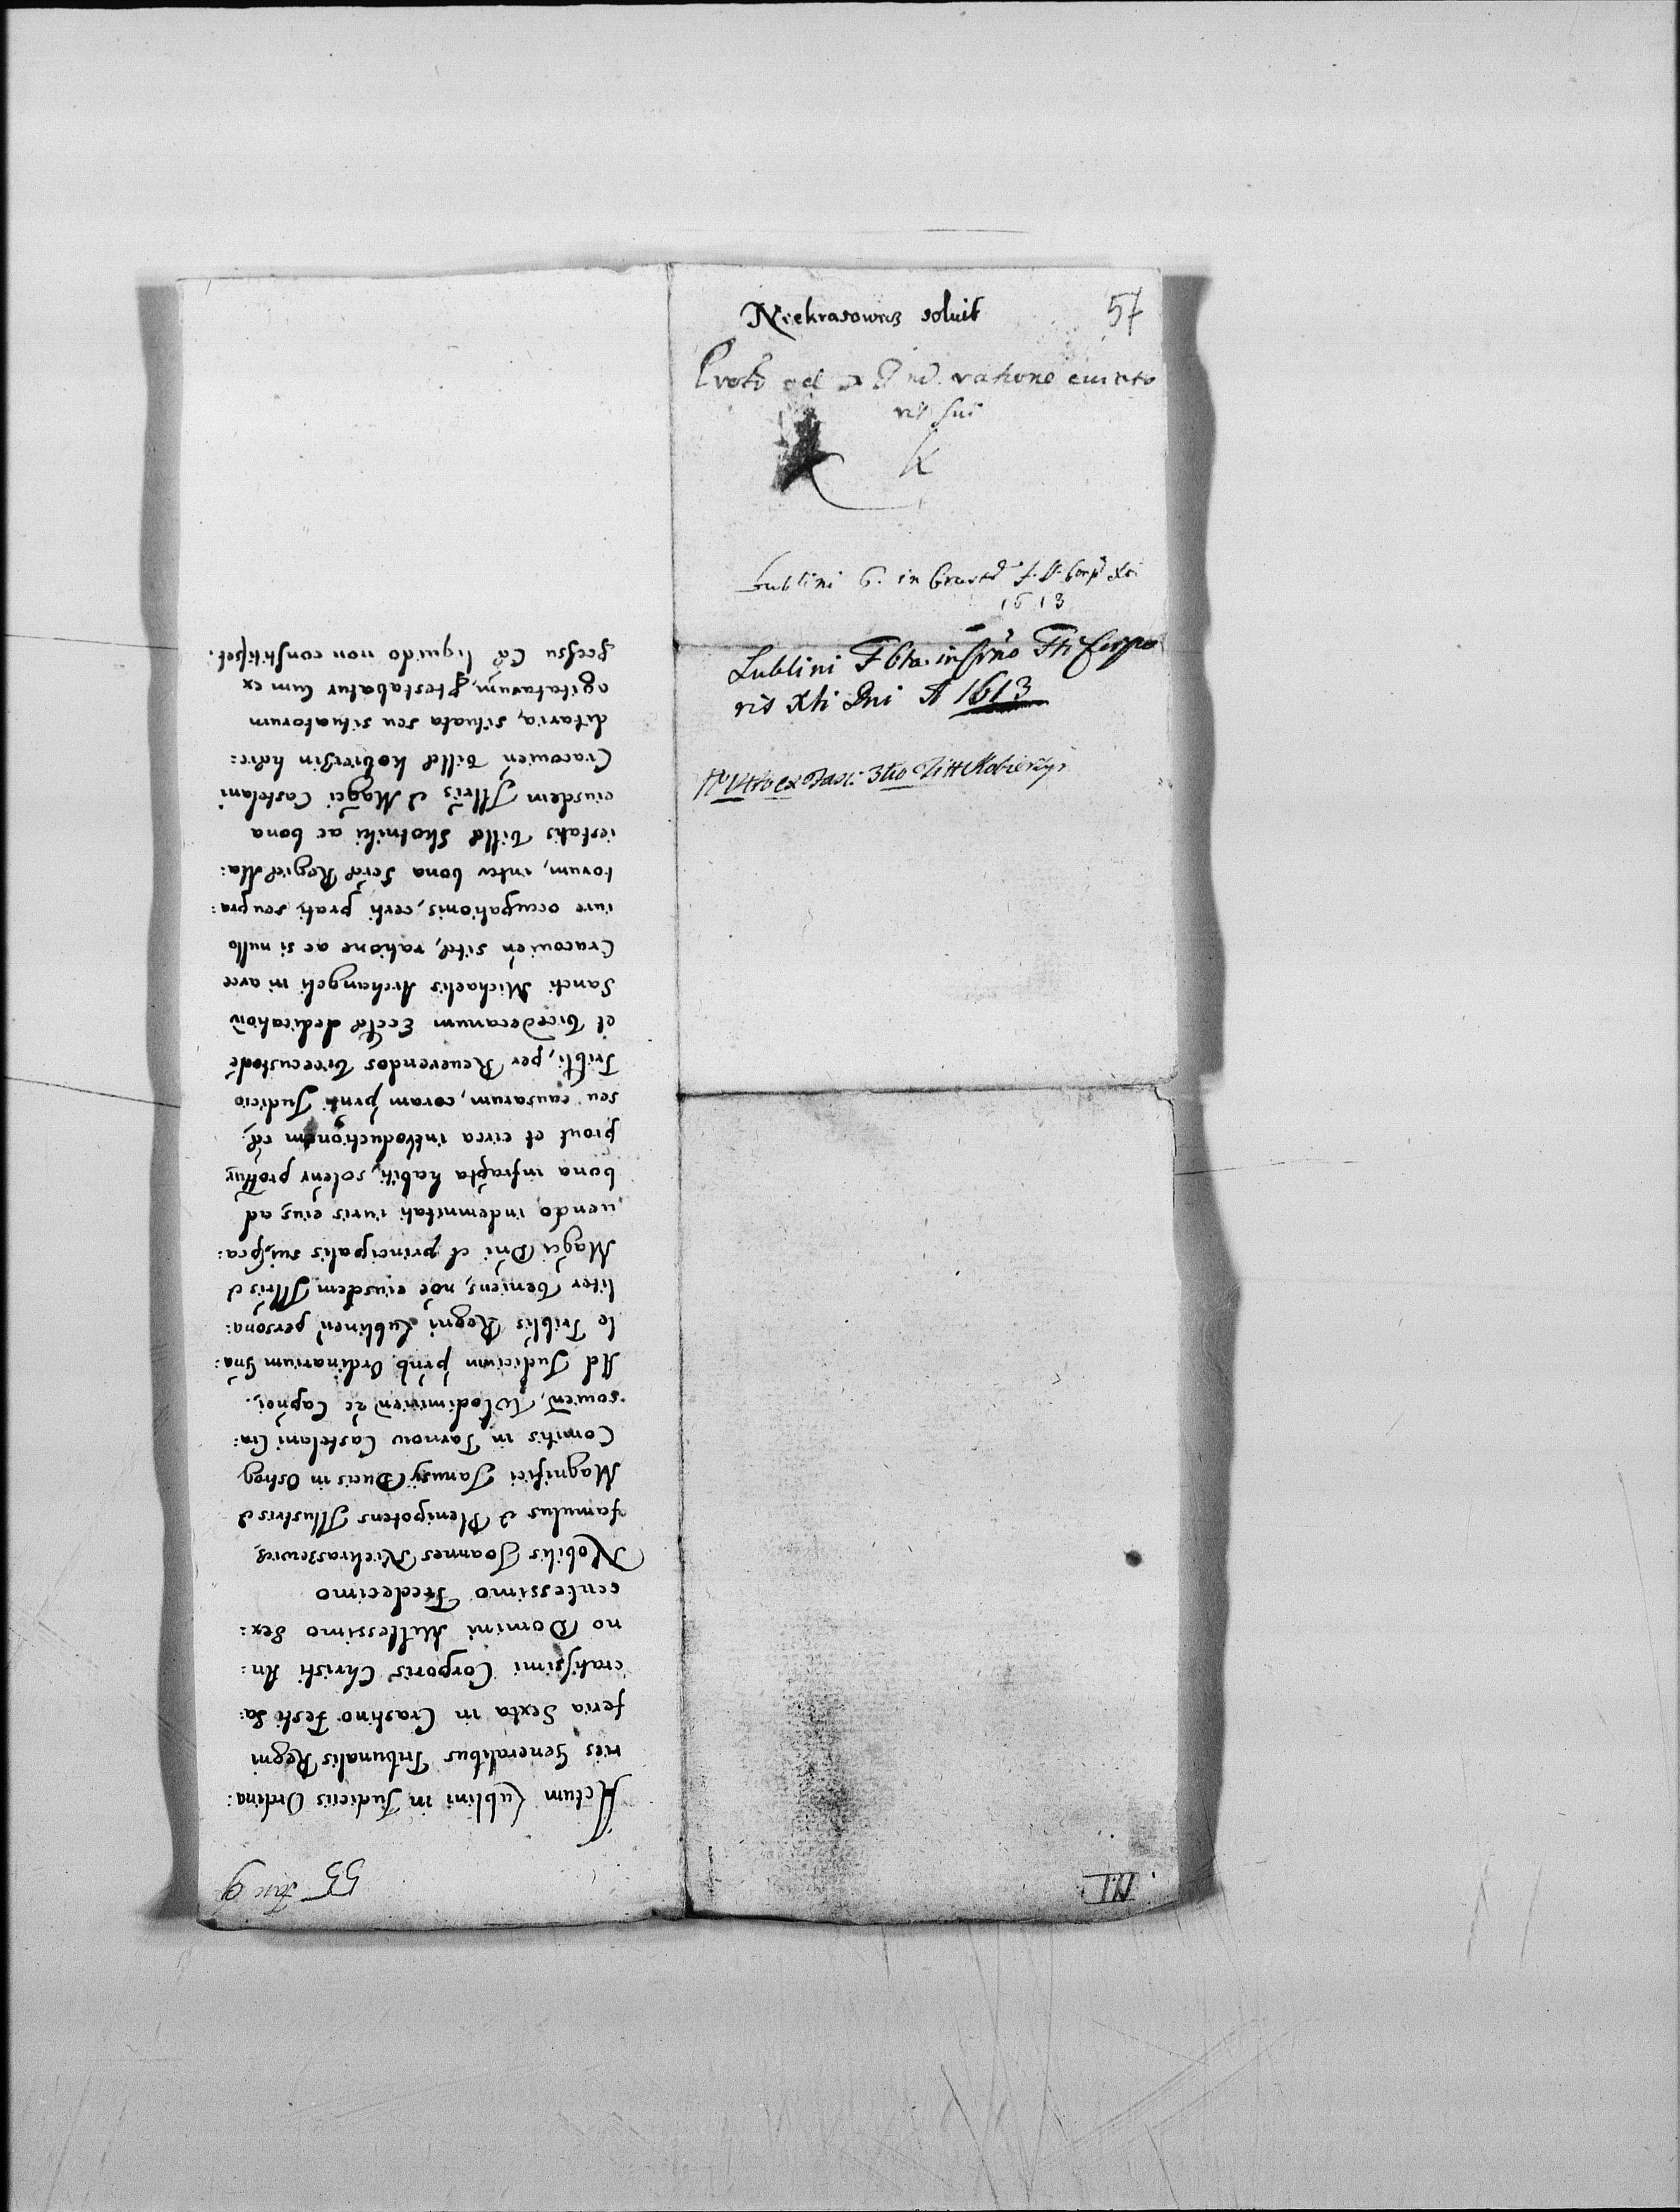 Niekrasowicz soluit
57
ratione euicto
ris sui
K
Lublini 6. in Crast
1613
Lublini Fria in Crno Fti Corpo
ris Xti Dni A 1613
3tio Kobierzyn
IIV
55
Actum Lublini in Judiciis Ordina:
riis Generalibus Tribunalis Regni
feria Sexta in Crastino Festi Sa:
cratissimi Corporis Christi An:
no Domini Millessimo Sex:
centessimo Tredecimo
Nobilis Joannes Niekraszewicz
famulus & Plenipotens Illustris &
Magnifici Janussij Ducis in Ostrog
Comitis in Tarnow Castelani Cra:
couien, Wlodimirien &c Capnei,
Ad Judicium prns Ordinarium Gna:
le Triblis Regni Lublinen persona:
liter veniens, noe eiusdem Illris &
Magci Dni & principalis sui, pca:
uendo indemnitati iuris eius ad
bona infrapta habiti, soleniter prottur
prout et circa introductionem
seu causarum, coram prnti Judicio
Tribli, per Reuerendos Vicecustode
et Vicedecanum Eccle dedication
Sancti Michaelis Archangeli in arce
Cracouien site, ratione ac si nullo
iure occupationis, certi prati seu pra:
torum, inter bona Scre Regie Ma:
iestatis Ville Skotniki ac bona
eiusdem Illris & Magci Castelani
Cracouien Ville Kobierzin hære:
ditaria, situata seu situatorum
agitatarum, ptestabatur Cum ex
pcessu Ca liquido non constitisset.